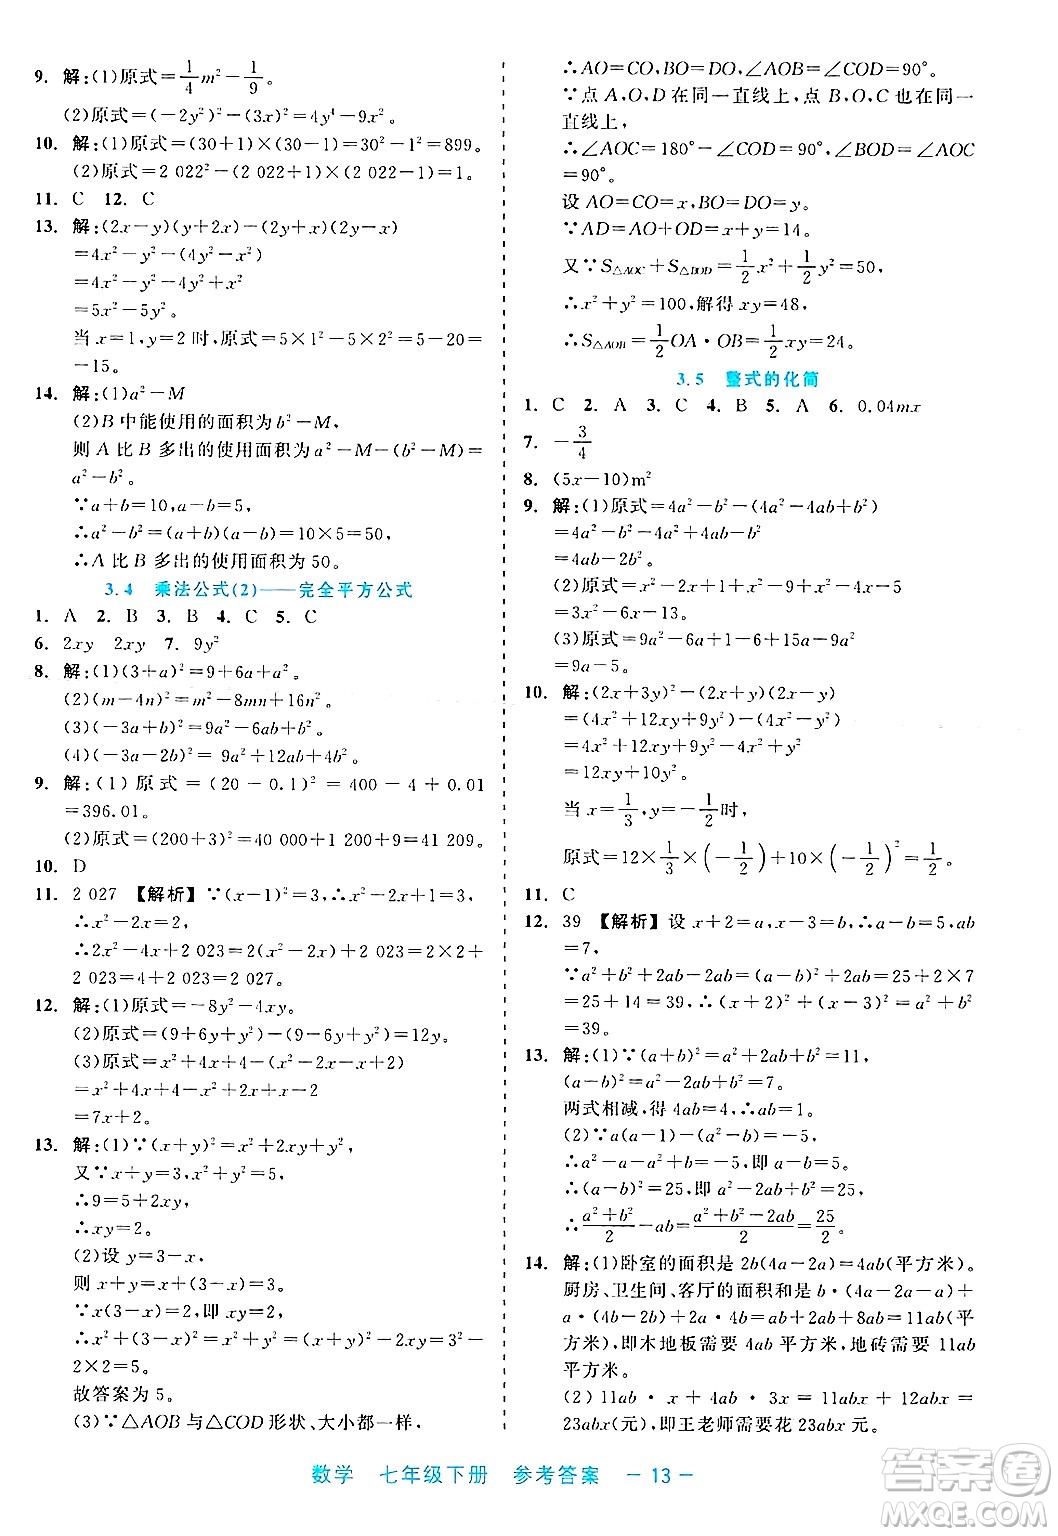 9. 解:(1)原式=$\frac{1}{4}m^2-\frac{1}{9}$。
(2)原式=(-2y²)²-(3x)²=4y⁴-9x²。
10. 解:(1)原式=(30+1)×(30-1)=30²-1=899。
(2)原式=2 022²-(2 022+1)(2 022-1)=1。
11. C 12. C
13. 解:(2x-y)(y+2x)-(2y+x)(2y-x)
=4x²-y²-4y²+x²
=5x²-5y²。
当 x=1,y=2 时,原式=5×1²-5×2²=5-20=
-15。
14. 解:(1)a²-M
(2)B 中能使用的面积为 b²-M,
则 A 比 B 多出的使用面积为 a²-M-(b²-M)=
a²-b²。
∵a+b=10,a-b=5,
∴a²-b²=(a+b)(a-b)=10×5=50,
∴A 比 B 多出的使用面积为 50。
3.4 乘法公式(2)——完全平方公式
1. A 2. B 3. B 4. C 5. C
6. 2xy 2xy 7. 9y²
8. 解:(1)(3+a)²=9+6a+a²。
(2)(m-4n)²=m²-8mn+16n²。
(3)(-3a+b)²=9a²-6ab+b²。
(4)(-3a-2b)²= 9a²+12ab+4b²。
9. 解:(1)原式=(20-0.1)²=400-4+0.01
=396.01。
(2)原式=(200+3)²=40 000+1 200+9=41 209。
10. D
11. 2 027 【解析】∵(x-1)²=3,∴x²-2x+1=3,
∴x²-2x=2,
∴2x²-4x+2 023=2(x²-2x)+2 023=2×2+
2 023=4+2 023=2 027。
12. 解:(1)原式=-8y²-4xy。
(2)原式=(9+6y+y²)-(9-6y+y²)=12y。
(3)原式=x²+4x+4-(x²-2x-x+2)
=x²+4x+4-x²+2x+x-2
=7x+2。
13. 解:(1)∵(x+y)²=x²+2xy+y²,
又∵x+y=3,x²+y²=5,
∴9=5+2xy,
∴xy=2。
(2)设 y=3-x,
则 x+y=x+(3-x)=3,
∵x(3-x)=2,即 xy=2,
∴x²+(3-x)²=x²+y²=(x+y)²-2xy=3²-
2×2=5。
故答案为 5。
(3)∵△AOB 与△COD 形状、大小都一样,
∴AO=CO,BO=DO,∠AOB=∠COD=90°。
∵点 A,O,D 在同一直线上,点 B,O,C 也在同一
直线上,
∴∠AOC=180°-∠COD=∠BOD=∠AOC
=90°。
设 AO=CO=x,BO=DO=y,
∵AD=AO+OD=x+y=14。
又∵$S_{△AOC}+S_{△BOD}=\frac{1}{2}x^2+\frac{1}{2}y^2=50$,
∴x²+y²=100,解得 xy=48,
∴$S_{△AOB}=\frac{1}{2}OA·OB=\frac{1}{2}xy=24$。
3.5 整式的化简
1. C 2. A 3. C 4. B 5. A 6. 0.04mx
7. $-\frac{3}{4}$
8. (5x-10)m²
9. 解:(1)原式=4a²-b²-(4a²-4ab+b²)
=4a²-b²-4a²+4ab-b²
=4ab-2b²。
(2)原式=x²-6x+9-(x²+2x-2x-4)
=x²-6x+9-x²+4
=-6x+13。
(3)原式=9a²-6a+1-9a²+15a-6
=9a-5。
10. 解:(2x+3y)²-(2x+y)(2x-y)
=(4x²+12xy+9y²)-(4x²-y²)
=4x²+12xy+9y²-4x²+y²
=12xy+10y²。
当 $x=\frac{1}{3}$,$y=-\frac{1}{2}$时,
原式=$12×\frac{1}{3}×(-\frac{1}{2})+10×(-\frac{1}{2})^2=\frac{1}{2}$。
11. C
12. 39 【解析】设 x+2=a,x-3=b,∴a-b=5,ab
=7,
∵a²+b²+2ab-2ab=(a-b)²+2ab=25+2×7
=25+14=39,∴(x+2)²+(x-3)²=a²+b²
=39。
13. 解:(1)∵(a+b)²=a²+2ab+b²=11,
(a-b)²=a²-2ab+b²=7。
两式相减,得 4ab=4,∴ab=1。
(2)∵a(a-1)-(a²-b)=-5,
∴a²-a-a²+b=-5,即 a-b=5,
∴(a-b)²=25,即 a²-2ab+b²=25,
∴$\frac{a^2+b^2}{2}-ab=\frac{a^2+b^2-2ab}{2}=\frac{25}{2}$。
14. 解:(1)卧室的面积是 2b(4a-2a)=4ab(平方米)。
厨房、卫生间、客厅的面积和是 b·(4a-2a-a)+
a·(4b-2b)+2a·4b=ab+2ab+8ab=11ab(平
方米),即木地板需要 4ab 平方米,地砖需要 11ab
平方米。
(2)11ab·x+4ab·3x=11abx+12abx=
23abx(元),即王老师需要花 23abx 元。
数学 七年级下册 参考答案 -13-
答案圈
MXQE.COM